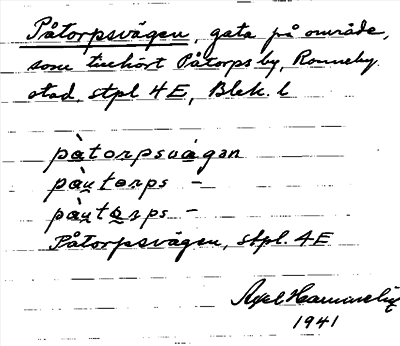 Påtorpsvägen, gata på område,
som tillhört Påtorps by, Ronneby
stad, stpl 4E, Blek. l
pàtorpsvagan
pàu̯torps –
pàu̯to̤rps –
Påtorpsvägen, stpl. 4E
Axel
1941